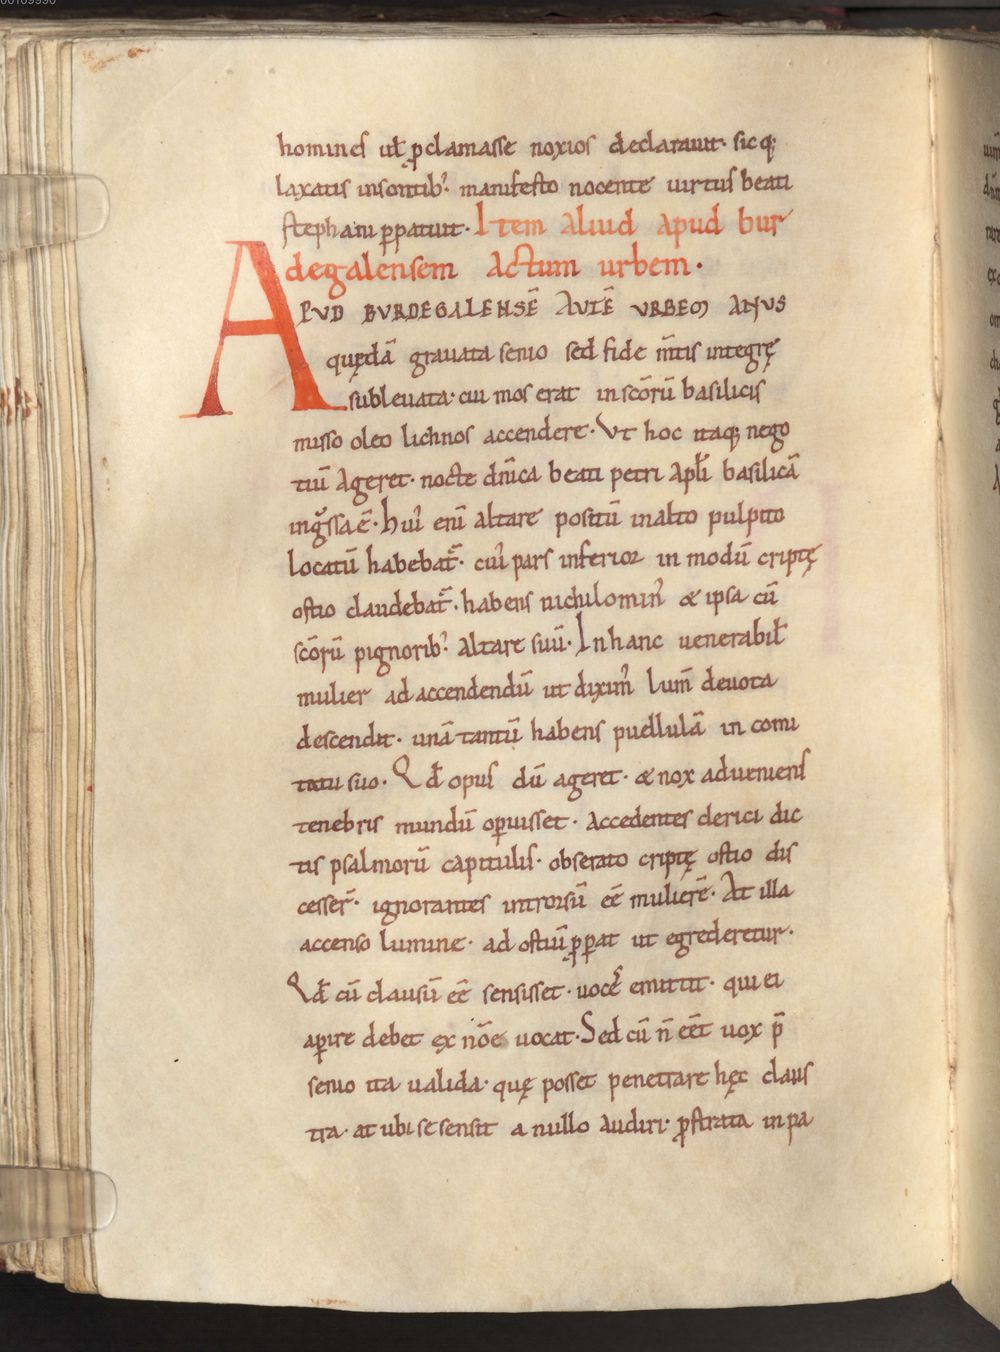 00109990
homines ut̄ ꝓclamasse noxios declarauit· sicq;
laxatis insontib;· manifesto nocente uirtus beati
stephani ꝓpatuit· Item aliud apud bur
degalensem actum urbem·
APVD BVRDEGALENSĒ AVTĒ VRBEM ANUS
quędā grauata senio sed fide m̄tis integrę
subleuata· cui mos erat in scōrū basilicis
misso oleo lichnos accendere· Vt hoc itaq; nego
tiū Ageret· nocte dn̄ica beati petri apl̄i basilicā
ingssa ē· hui᾽ eni altare positū in alto pulpito
locatū habebat᷑· cui᾽ pars inferior in modū criptę
ostio claudebat᷑· habens nichilomin᾽ & ipsa cū
scōrū pignorib;· altare suū· In hanc uenerabil̄
mulier ad accendendū ut dixim᾽ lum̄ deuota
descendit· unā tantū habens puellulā in comi
tatu suo· Qd̄ opus dū ageret· & nox adueniens
tenebris mundū oꝑuisset· Accedentes clerici dic
tis psalmorū capitulis· obserato criptę ostio dis
cesser̄· ignorantes introrsū eē mulierē· At illa
accenso lumine· ad ostiū ꝓꝑat ut egrederetur·
Qd̄ cū clausū eē sensisset· uocē emittit· qui ei
aꝑire debet ex nōe uocat· Sed cū n̄ eēt uox p̄
senio ita ualida· quę posset penetrare hęc claus
tra· at ubi se sensit a nullo audiri· ꝓstrata in pa